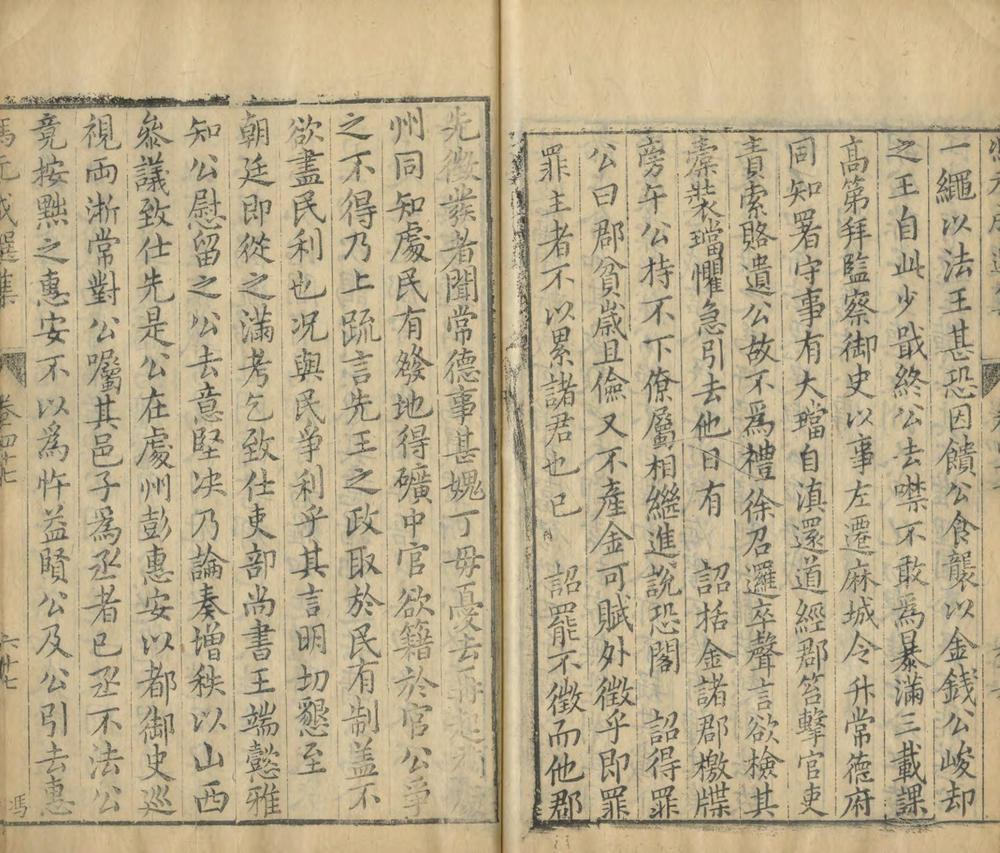 一繩以法王甚恐因饋公食襲以金錢公峻却
之王自此少戢終公去噤不敢爲暴滿三載課
高第拜監察御史以事左遷麻城令升常德府
同知署守事有大璫自滇還道經郡笞擊官吏
責索賂遺公故不爲禮徐召邏卒聲言欲檢其
橐裝璫懼急引去他日有 詔括金諸郡檄牒
旁午公持不下僚屬相繼進説恐閣 詔得罪
公曰郡貧歲且儉又不產金可賦外徵乎即罪
罪主者不以累諸君也已 詔罷不徵而他郡
先徵發者聞常德事甚媿丁毋憂去再起
州同知處民有發地得礦中官欲籍於官公爭
之不得乃上疏言先王之政取於民有制盖不
欲盡民利也况與民爭利乎其言明切懇至
朝廷即從之滿考乞致仕吏部尚書王端懿雅
知公慰留之公去意堅决乃論奏增秩以山西
叅議致仕先是公在處州彭惠安以都御史巡
視两淅常對公囑其邑子爲丞者已丞不法公
竟按黜之惠安不以爲忤益賢公及公引去惠
馮元成選集 卷四十七 六廿七 馮